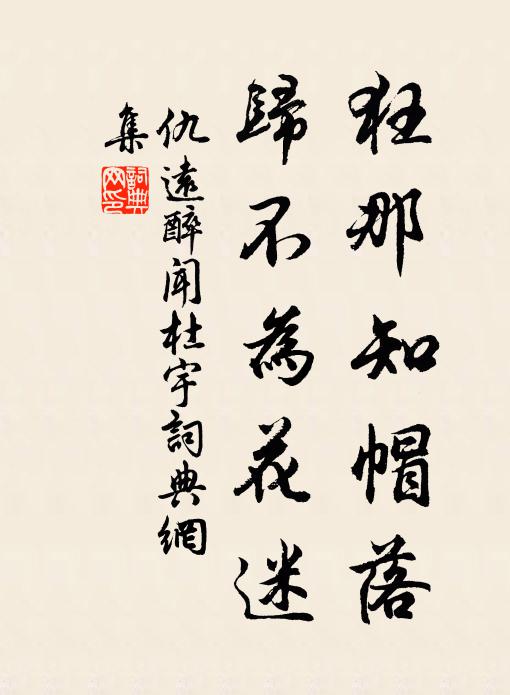 狂那知帽落
歸不為花迷
仇遠醉聞杜宇詞典網
集
詞典網印